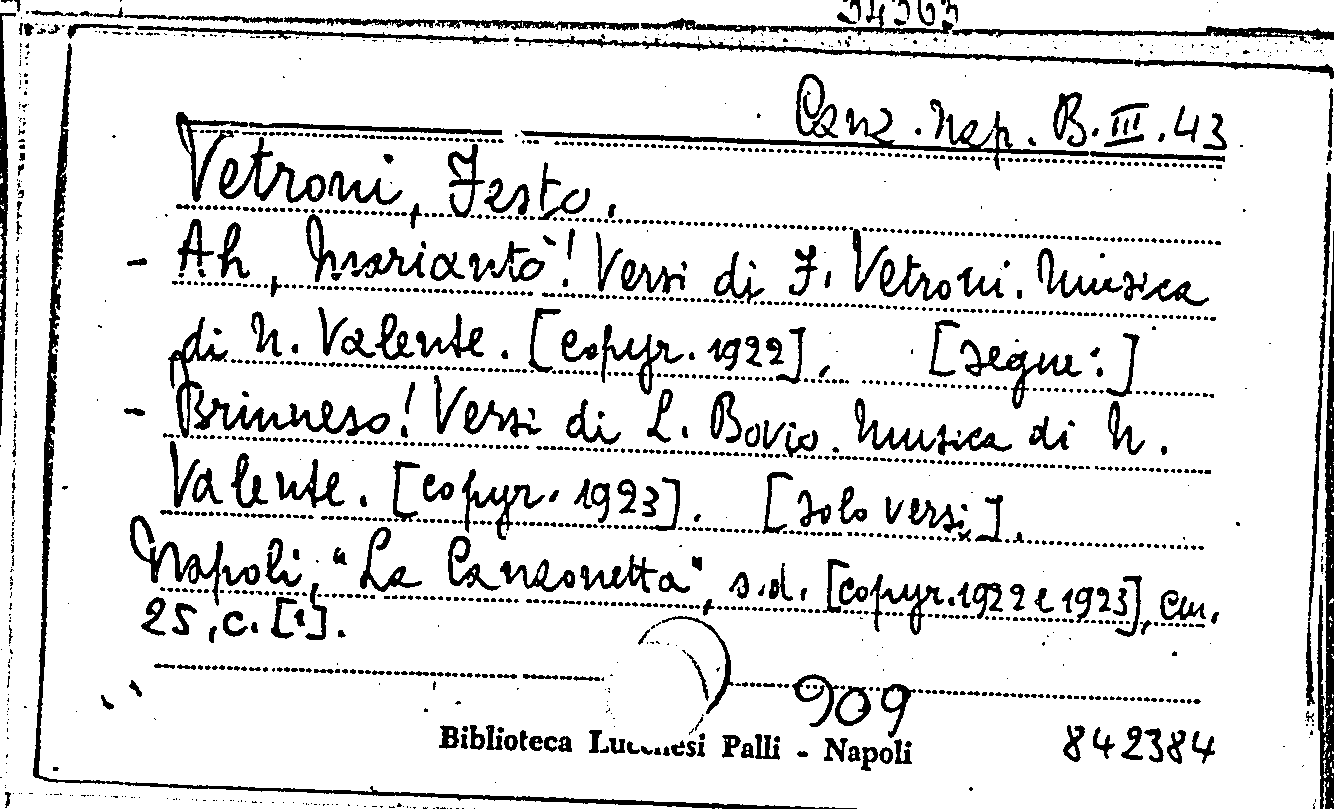 34363
Canz. Nap. B. III. 43
Vetroni, Festo.
- Ah, Mariantò! Versi di F. Vetroni. Musica
di N. Valente. [copyr. 1922]. [segue:]
- Brinneso! Versi di L. Bovio. Musica di N.
Valente. [copyr. 1923]. [solo versi].
Napoli, "La Canzonetta", s.d. [copyr. 1922 e 1923], cm.
25, c. [1].
909
Biblioteca Lucchesi Palli - Napoli
842384